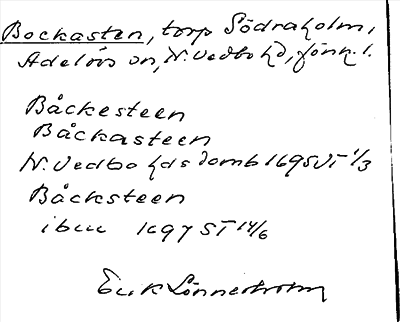 Bockasten, torp Södraholm,
Adelövs sn, N. Vedbo hd, Jönk. l.
Båckesteen
Båckasteen
N. Vedbo hds domb 1695 VT 1/3
Båcksteen
ibm 1697 ST 14/6
Erik Lönnerholm